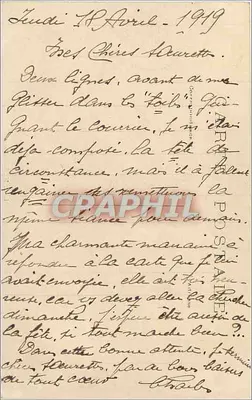 Jeudi 18 Avril - 1919
Mes Chères Saurettes
Deux lignes, avant de me
glisser dans les "toiles". Gui-
gnant le courrier, je m'étais
déjà composé, la tête de
circonstance, mais il a fallu
rengainer les émotions la
même séance pour demain.
Ma charmante manman a
répondu à la carte que je lui
avait envoyée, elle est très heu-
reuse, car devez aller la chercher
dimanche, j'espère être aussi de
la fête, si tout marche bien?..
Dans cette bonne attente, je termine
chères Saurettes, par de bons baisers
de tout cœur
Charles
CARTE POSTALE
CPAPHIL